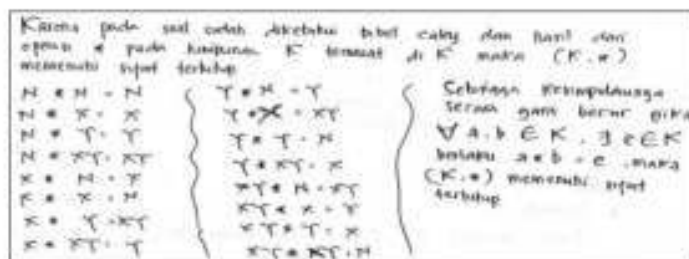 Karena pada soal sudah diketahui tabel caley dan hasil dari
operasi * pada himpunan K termuat di K maka (K, *)
memenuhi sifat tertutup
N * N = N
N * X = X
N * Y = Y
N * XY = XY
X * N = X
X * X = N
X * Y = XY
X * XY = Y
Y * N = Y
Y * X = XY
Y * Y = N
Y * XY = X
XY * N = XY
XY * X = Y
XY * Y = X
XY * XY = N
Sehingga kesimpulannya
secara garis besar jika
∀ a, b ∈ K, ∃ c ∈ K
berlaku a * b = c maka
(K, *) memenuhi sifat
tertutup